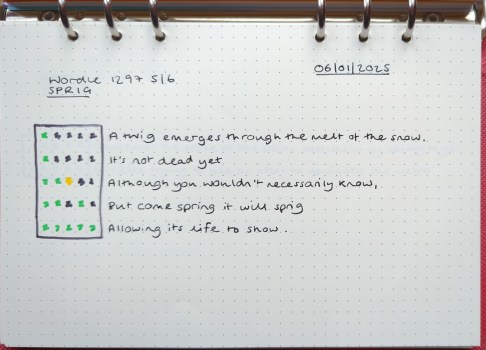 06/01/2025
Wordle 1297 5/6
SPRIG
A twig emerges through the melt of the snow.
It's not dead yet
Although you wouldn't necessarily know,
But come spring it will sprig
Allowing its life to show.